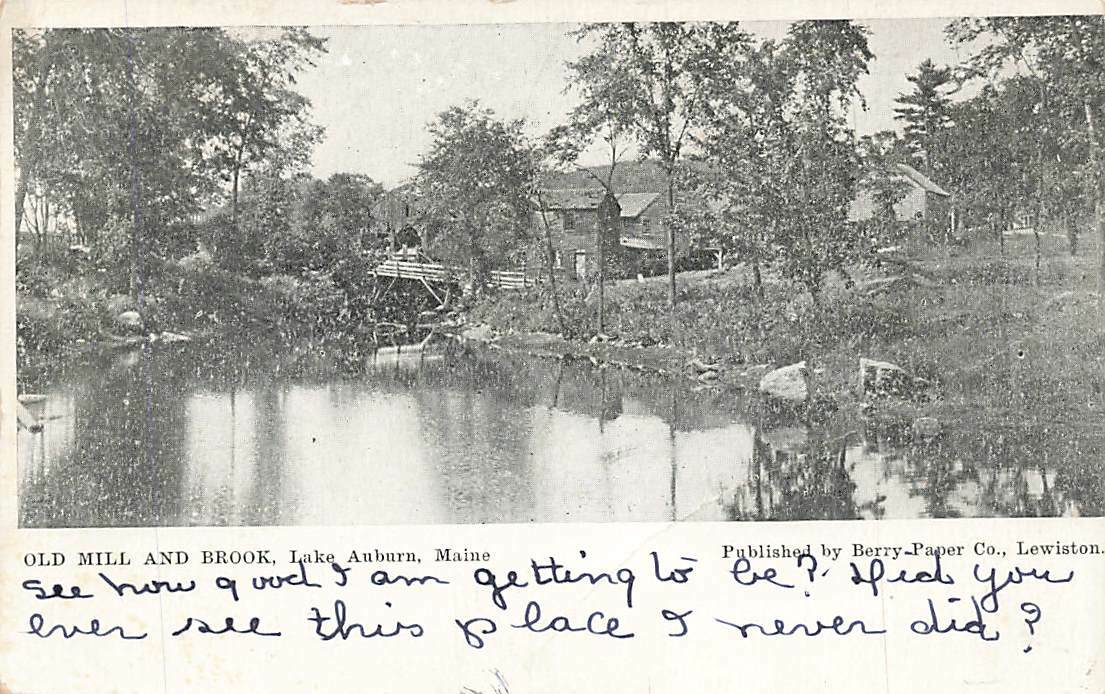 OLD MILL AND BROOK, Lake Auburn, Maine
Published by Berry Paper Co., Lewiston.
see how good I am getting to be? Did you
ever see this place I never did?